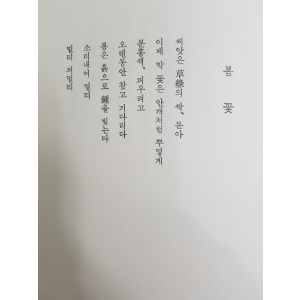 봄 꽃
씨앗은 草綠의 싹, 돋아
이제 막 꽃은 안개처럼 뿌옇게
분홍색, 피우려고
오랜동안 참고 기다리다
봄은 흙으로 鍾을 빚는다
소리내어 멀리
멀리 저멀리